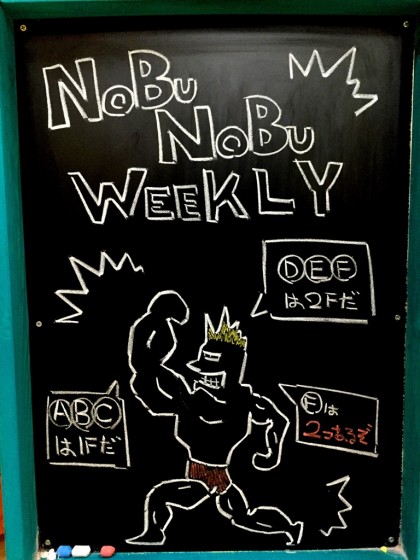 NoBu
NoBu
WEEKLY
DEF
は2Fだ
ABC
は1Fだ
Eは
2つもあるぞ